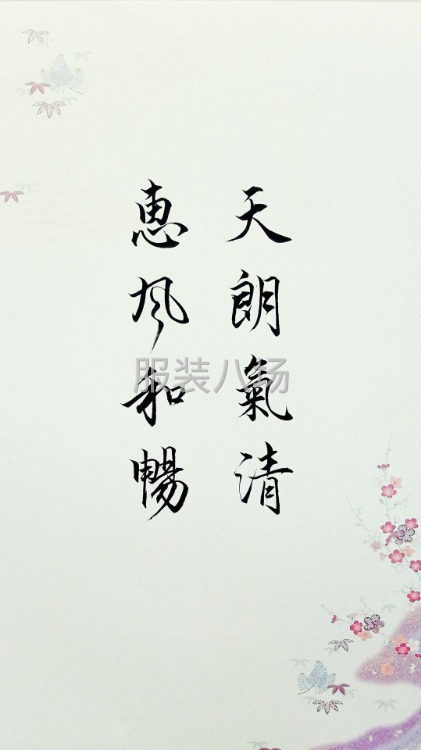 天朗氣清
惠風和暢
服装八场